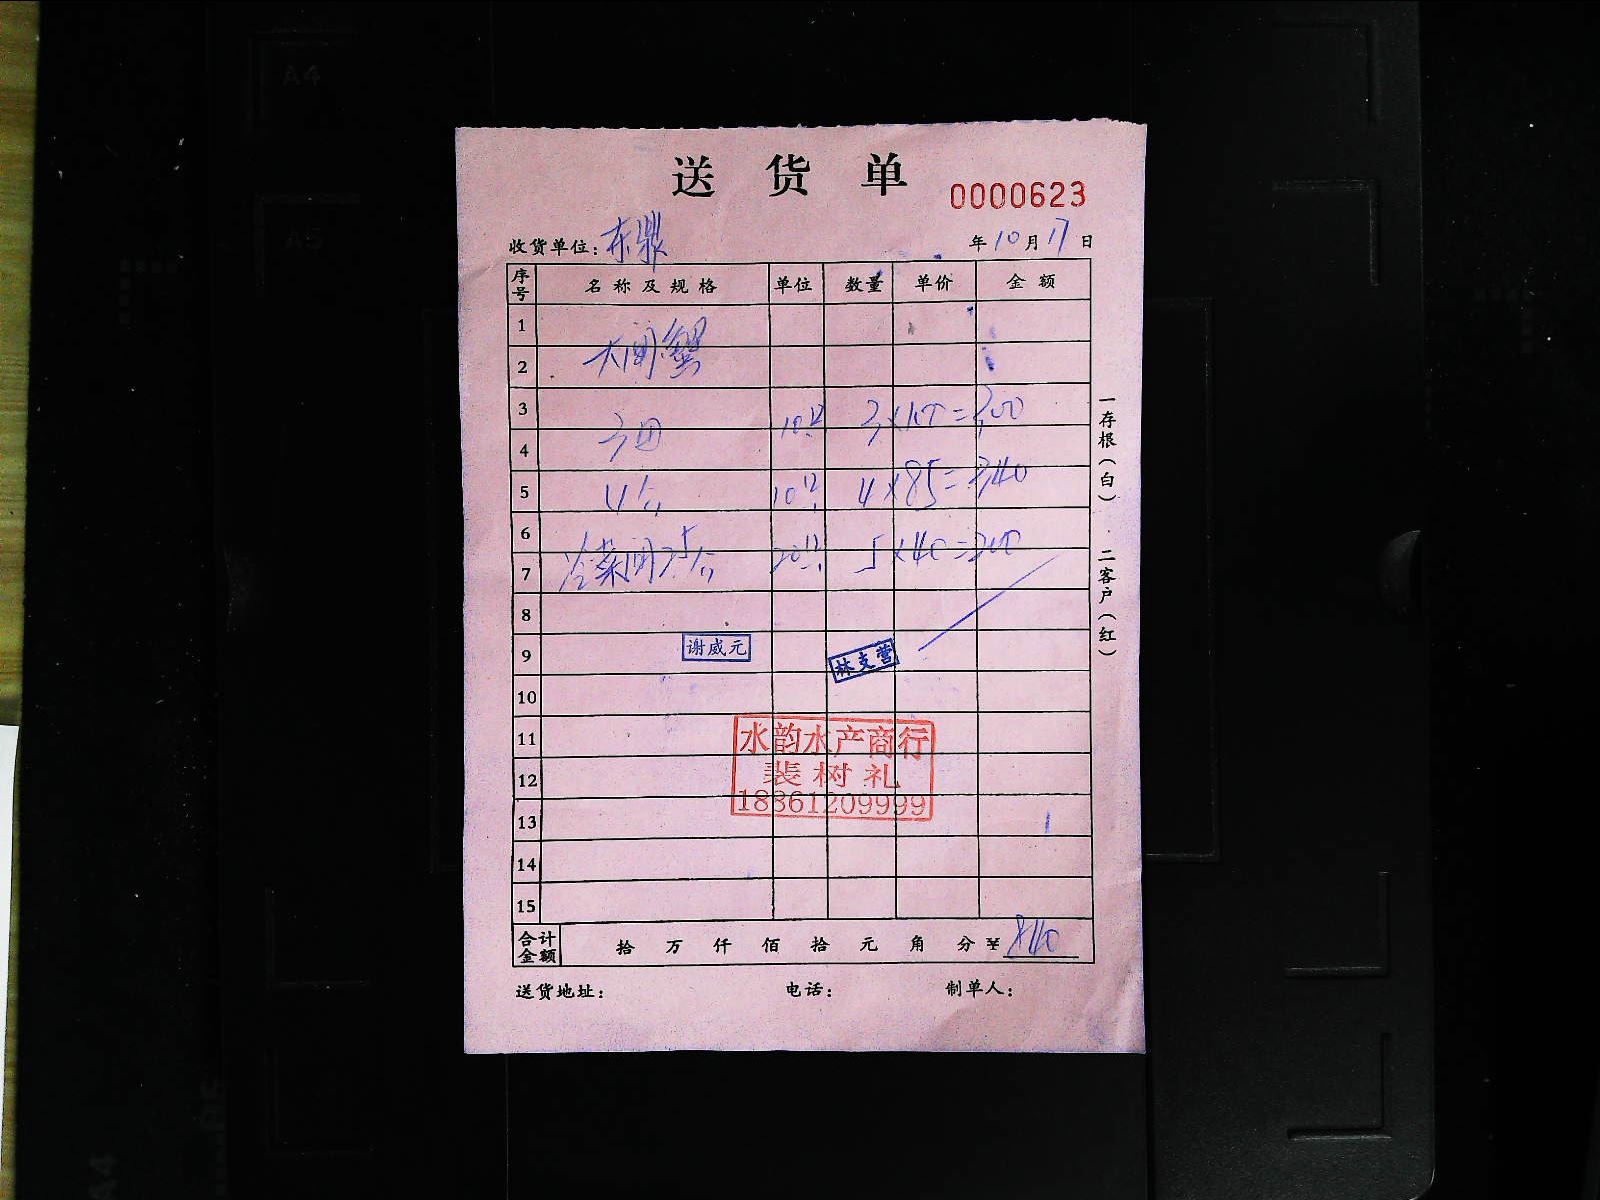 A4
A5
送货单
0000623
收货单位：东鼎
年10月17日
序号 名称及规格 单位 数量 单价 金额
1
大闸蟹
2
3
3×100=300
4
5
4× 10只 4×85=340
6
冷菜间 20只 5×40=200
7
8
9 谢威元 林支营
10
11 水韵水产商行
12 裴树礼
13 18861209999
14
15
合计金额 拾万仟佰拾元角分¥840
送货地址： 电话： 制单人：
一存根（白） 二客户（红）